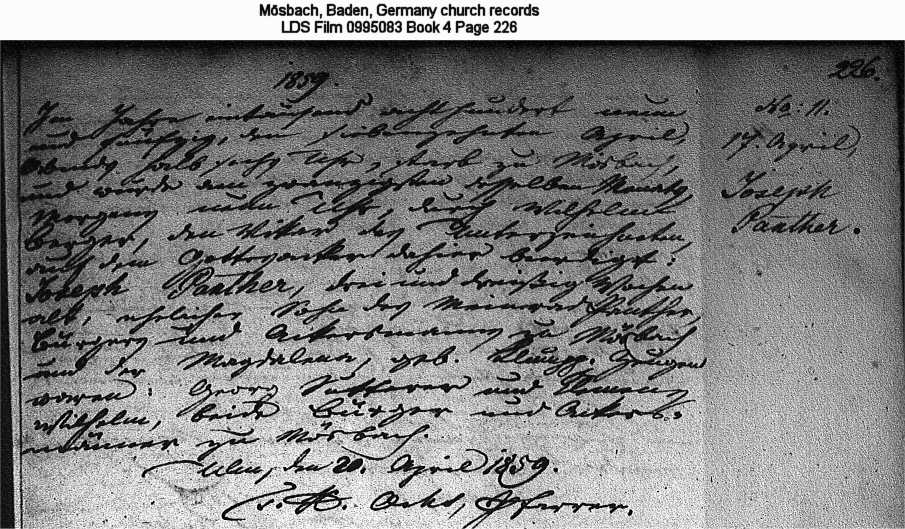 Mösbach, Baden, Germany church records
LDS Film 0995083 Book 4 Page 226
1859.
226.
Im Jahre eintausend achthundert neun
und fünfzig, den siebenzehnten April,
Abends halb sechs Uhr, starb zu Mösbach,
und wurde am zwanzigsten desselben Monats
Morgens neun Uhr, durch Wilhelm
Berger, den Vikar des Unterzeichneten
auf dem Gottesacker dahier beerdigt:
Joseph Panther, drei und dreißig Wochen
alt, ehelicher Sohn des Meinrad Panther,
Bürgers und Ackersmanns zu Mösbach
und der Magdalena, geb. Klumpp. Zeugen
waren: Georg Sutterer und
Wilhelm, beide Bürger und Ackers-
männer zu Mösbach.
Ulm, den 20. April 1859.
Pfarrer.
No: 11.
17. April,
Joseph
Panther.